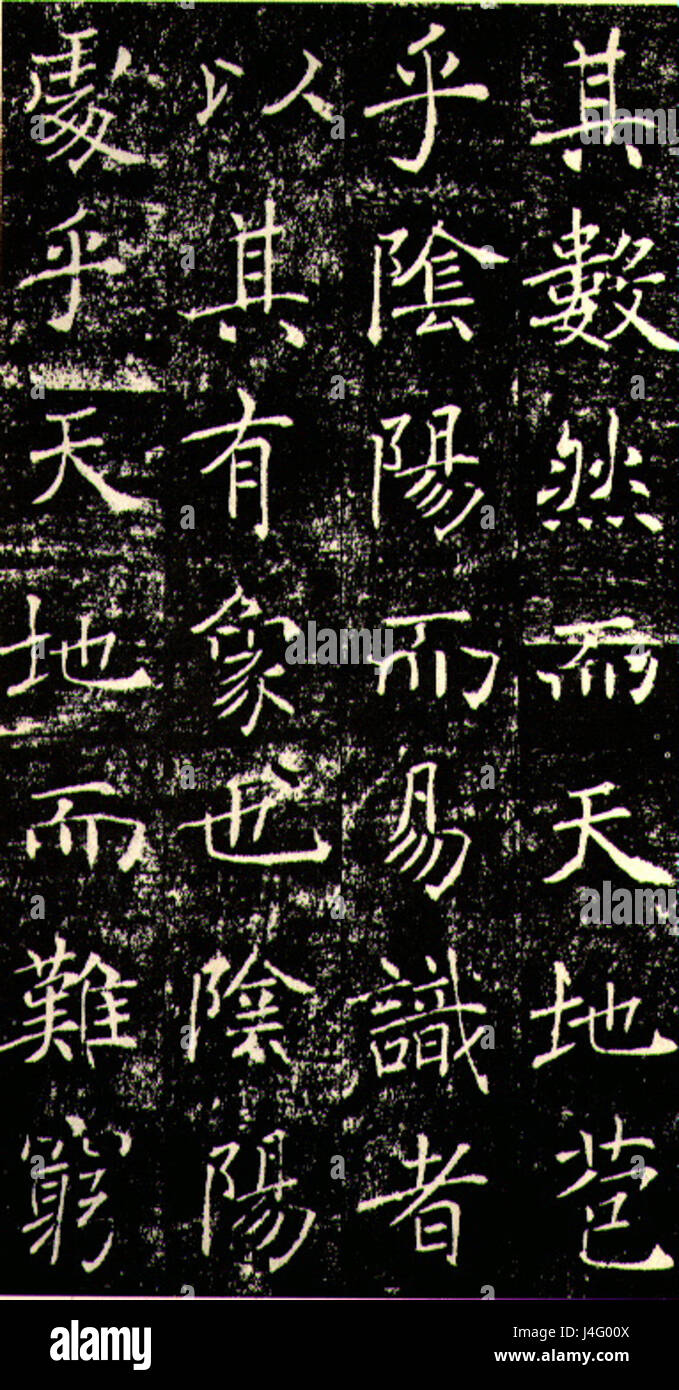 其數然而天地苞
乎陰陽而易識者
以其有象也陰陽
處乎天地而難窮
alamy
alamy
alamy
Image ID: J4G00X
www.alamy.com